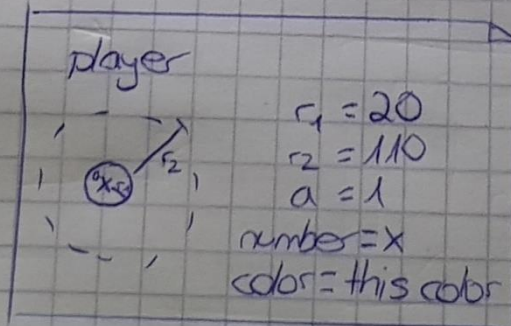 player
r₁ = 20
r₂ = 110
r₂
a = 1
number = x
color = this color